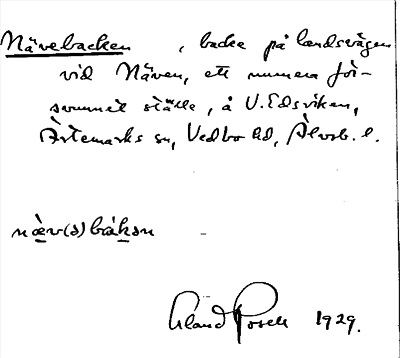 Nävebacken , backe på landsvägen
vid Näven, ett numera för-
svunnet ställe, å V. Edsviken,
Ärtemarks sn, Vedbo hd, Älvsb. l.
næv(ə)bàkən
Erland Rosell 1929.